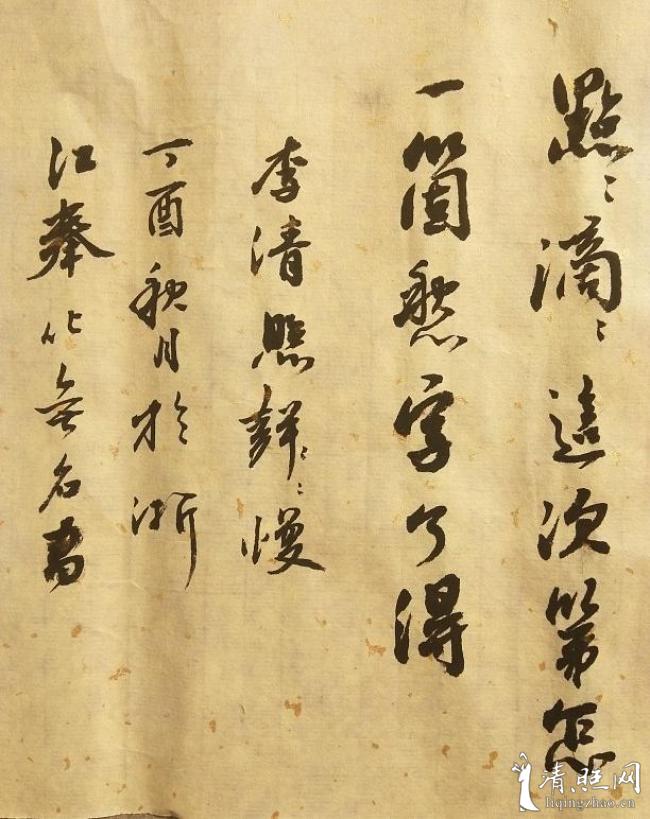 點〻滴〻這次第怎
一箇愁字了得
李清照聲〻慢
丁酉秋月於浙
江奉化無名書
清照网
liqingzhao.cn